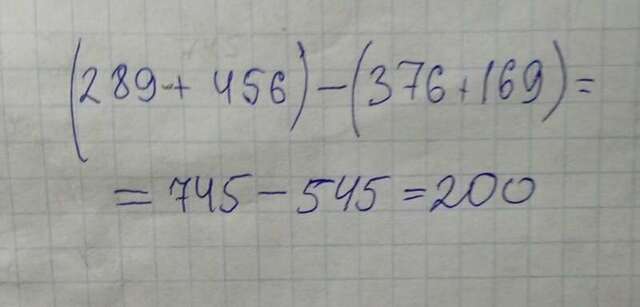 (289+456)-(376+169)=
=745-545=200